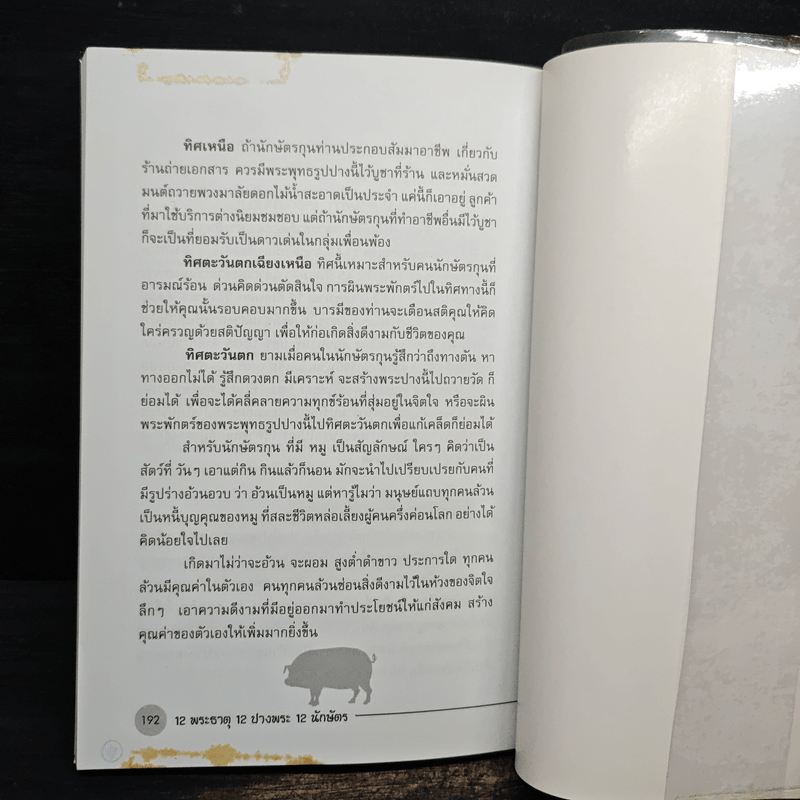 ทิศเหนือ ถ้านักษัตรกุนท่านประกอบสัมมาอาชีพ เกี่ยวกับ
ร้านถ่ายเอกสาร ควรมีพระพุทธรูปปางนี้ไว้บูชาที่ร้าน และหมั่นสวด
มนต์ถวายพวงมาลัยดอกไม้น้ำสะอาดเป็นประจำ แค่นี้ก็เอาอยู่ ลูกค้า
ที่มาใช้บริการต่างนิยมชมชอบ แต่ถ้านักษัตรกุนที่ทำอาชีพอื่นมีไว้บูชา
ก็จะเป็นที่ยอมรับเป็นดาวเด่นในกลุ่มเพื่อนพ้อง
ทิศตะวันตกเฉียงเหนือ ทิศนี้เหมาะสำหรับคนนักษัตรกุนที่
อารมณ์ร้อน ด่วนคิดด่วนตัดสินใจ การผินพระพักตร์ไปในทิศทางนี้ก็
ช่วยให้คุณนั้นรอบคอบมากขึ้น บารมีของท่านจะเตือนสติคุณให้คิด
ใคร่ครวญด้วยสติปัญญา เพื่อให้ก่อเกิดสิ่งดีงามกับชีวิตของคุณ
ทิศตะวันตก ยามเมื่อคนในนักษัตรกุนรู้สึกว่าถึงทางตัน หา
ทางออกไม่ได้ รู้สึกดวงตก มีเคราะห์ จะสร้างพระปางนี้ไปถวายวัด ก็
ย่อมได้ เพื่อจะได้คลี่คลายความทุกข์ร้อนที่สุ่มอยู่ในจิตใจ หรือจะผิน
พระพักตร์ของพระพุทธรูปปางนี้ไปทิศตะวันตกเพื่อแก้เคล็ดก็ย่อมได้
สำหรับนักษัตรกุน ที่มี หมู เป็นสัญลักษณ์ ใครๆ คิดว่าเป็น
สัตว์ที่ วันๆ เอาแต่กิน กินแล้วก็นอน มักจะนำไปเปรียบเปรยกับคนที่
มีรูปร่างอ้วนอวบ ว่า อ้วนเป็นหมู แต่หารู้ไมว่า มนุษย์แถบทุกคนล้วน
เป็นหนี้บุญคุณของหมู ที่สละชีวิตหล่อเลี้ยงผู้คนครึ่งค่อนโลก อย่างได้
คิดน้อยใจไปเลย
เกิดมาไม่ว่าจะอ้วน จะผอม สูงต่ำดำขาว ประการใด ทุกคน
ล้วนมีคุณค่าในตัวเอง คนทุกคนล้วนซ่อนสิ่งดีงามไว้ในห้วงของจิตใจ
ลึกๆ เอาความดีงามที่มีอยู่ออกมาทำประโยชน์ให้แก่สังคม สร้าง
คุณค่าของตัวเองให้เพิ่มมากยิ่งขึ้น
192 12 พระธาตุ 12 ปางพระ 12 นักษัตร